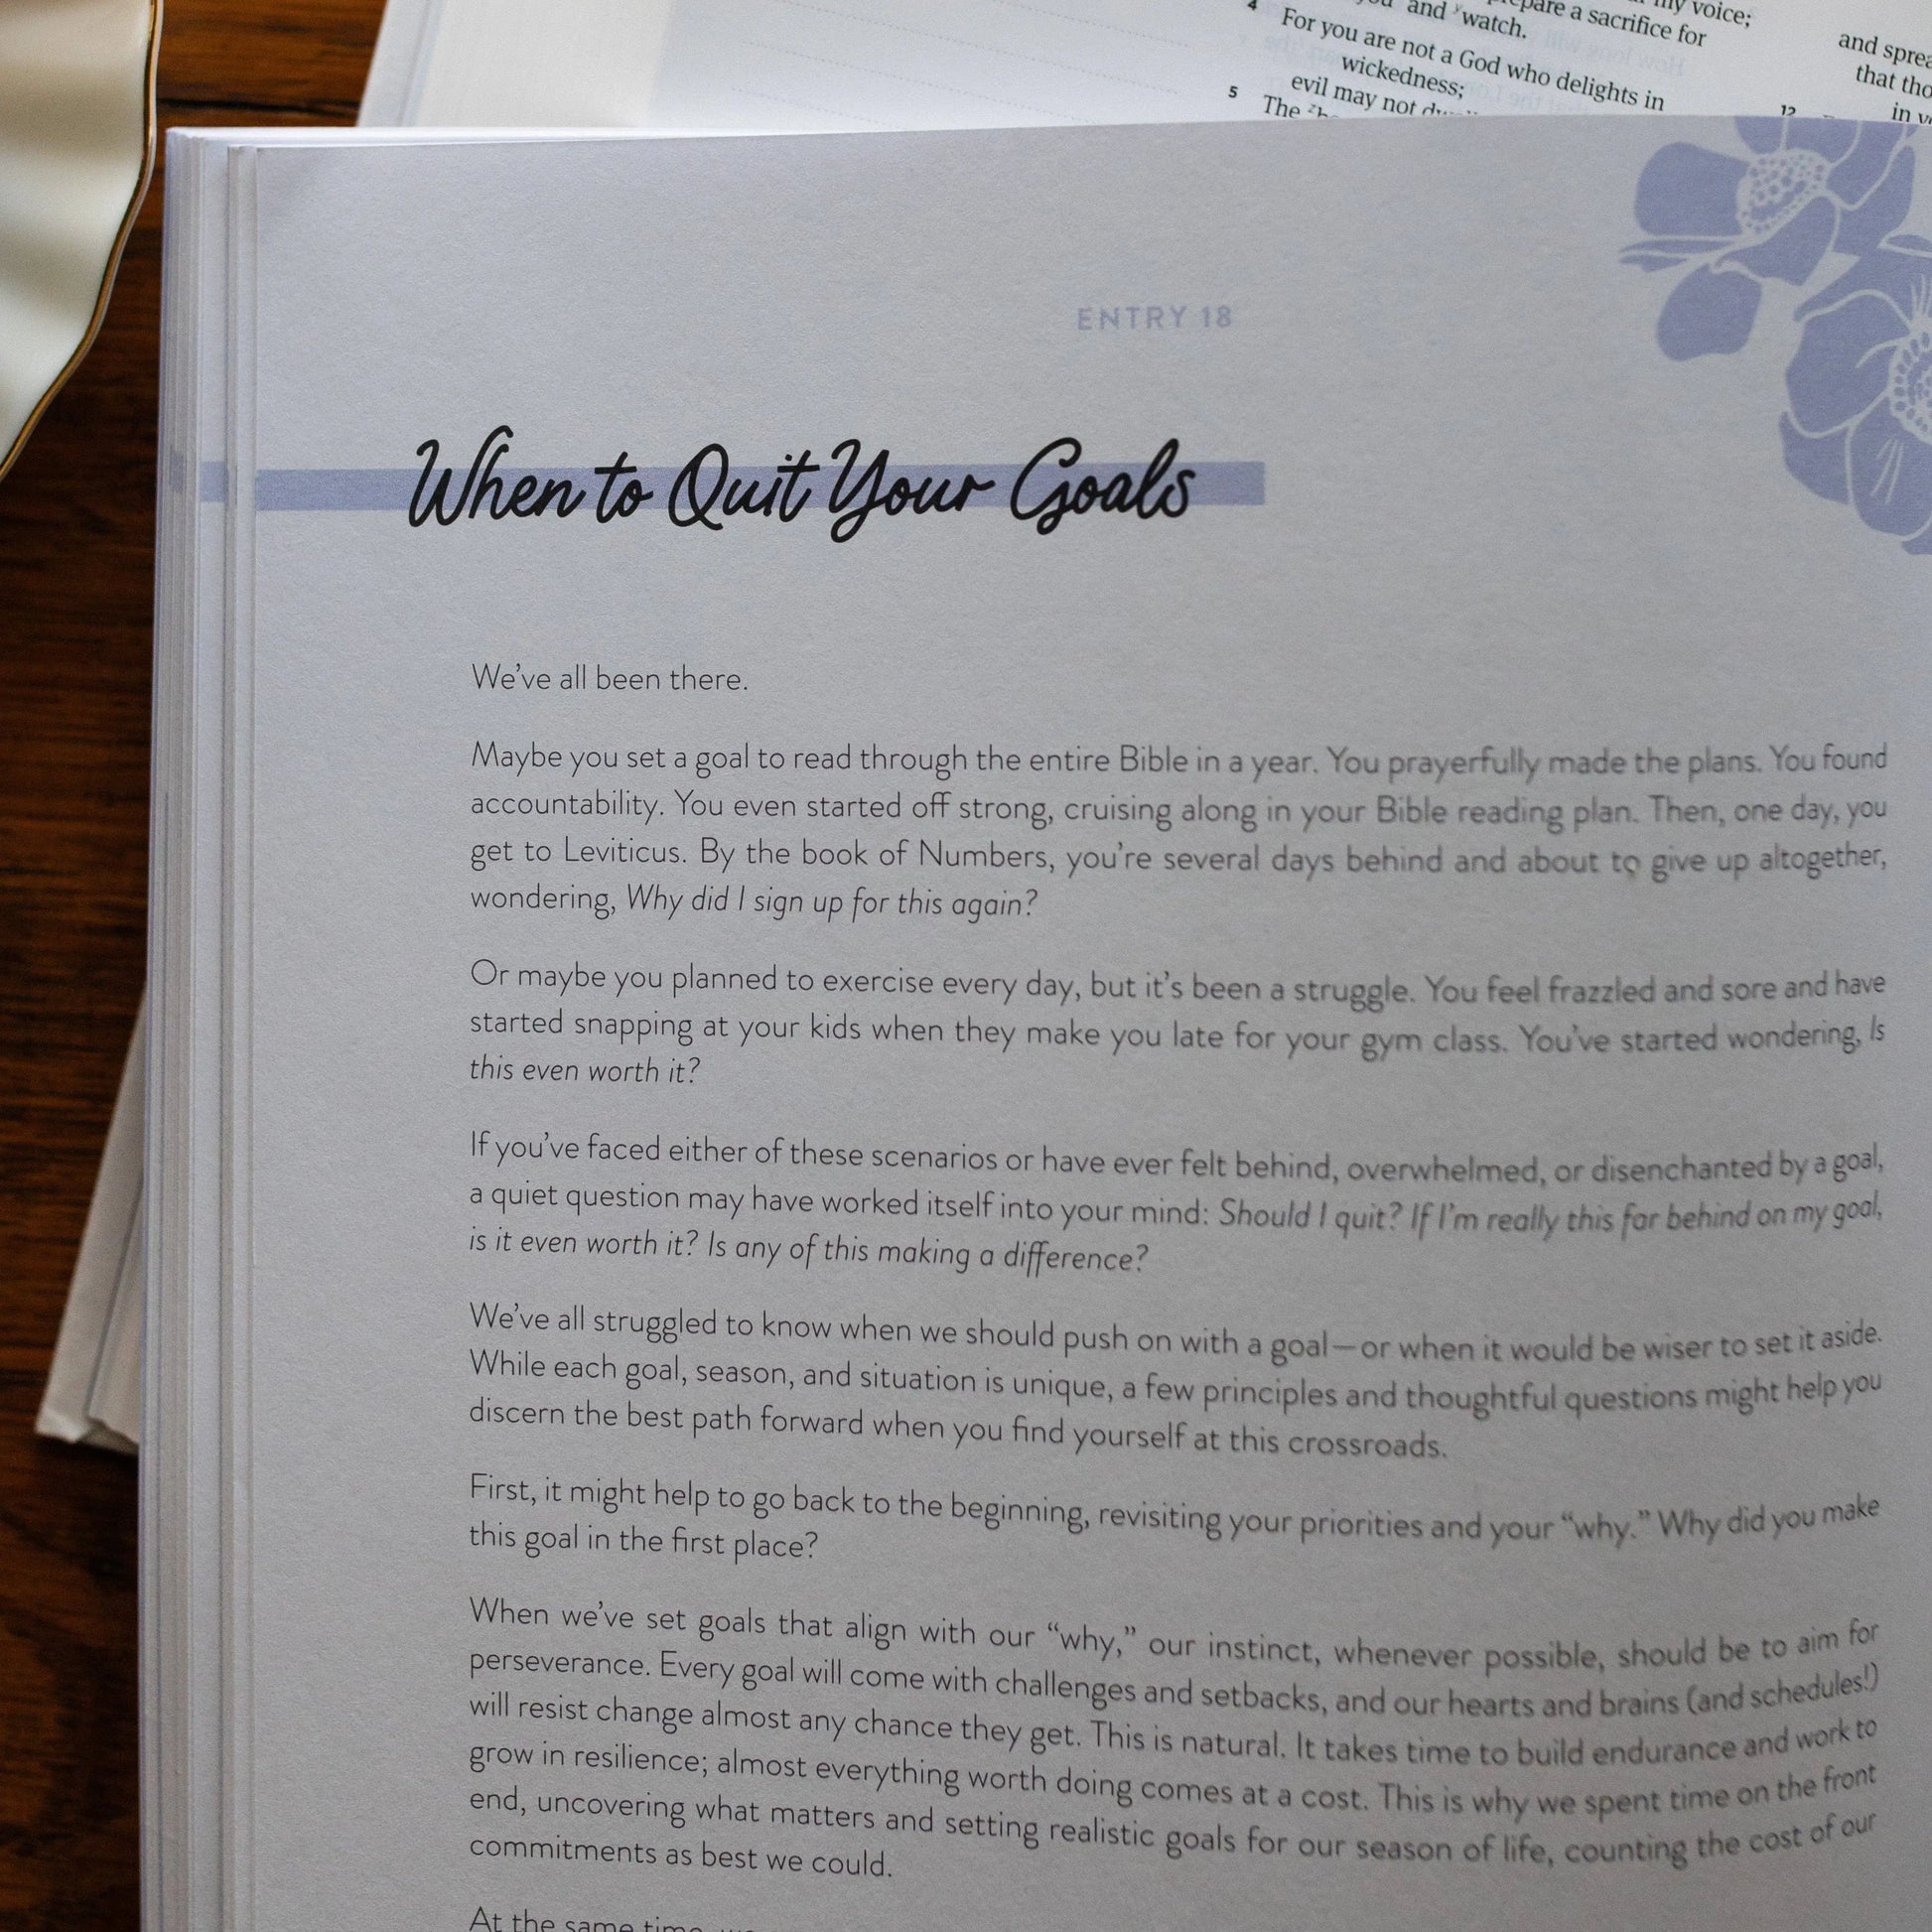 my voice;
prepare a sacrifice for
and watch.
4 For you are not a God who delights in
wickedness;
evil may not
5 The
12
and
that
in
ENTRY 18
When to Quit Your Goals
We’ve all been there.
Maybe you set a goal to read through the entire Bible in a year. You prayerfully made the plans. You found
accountability. You even started off strong, cruising along in your Bible reading plan. Then, one day, you
get to Leviticus. By the book of Numbers, you’re several days behind and about to give up altogether,
wondering, Why did I sign up for this again?
Or maybe you planned to exercise every day, but it’s been a struggle. You feel frazzled and sore and have
started snapping at your kids when they make you late for your gym class. You’ve started wondering, Is
this even worth it?
If you’ve faced either of these scenarios or have ever felt behind, overwhelmed, or disenchanted by a goal,
a quiet question may have worked itself into your mind: Should I quit? If I’m really this far behind on my goal,
is it even worth it? Is any of this making a difference?
We’ve all struggled to know when we should push on with a goal—or when it would be wiser to set it aside.
While each goal, season, and situation is unique, a few principles and thoughtful questions might help you
discern the best path forward when you find yourself at this crossroads.
First, it might help to go back to the beginning, revisiting your priorities and your “why.” Why did you make
this goal in the first place?
When we’ve set goals that align with our “why,” our instinct, whenever possible, should be to aim for
perseverance. Every goal will come with challenges and setbacks, and our hearts and brains (and schedules!)
will resist change almost any chance they get. This is natural. It takes time to build endurance and work to
grow in resilience; almost everything worth doing comes at a cost. This is why we spent time on the front
end, uncovering what matters and setting realistic goals for our season of life, counting the cost of our
commitments as best we could.
At the same time,